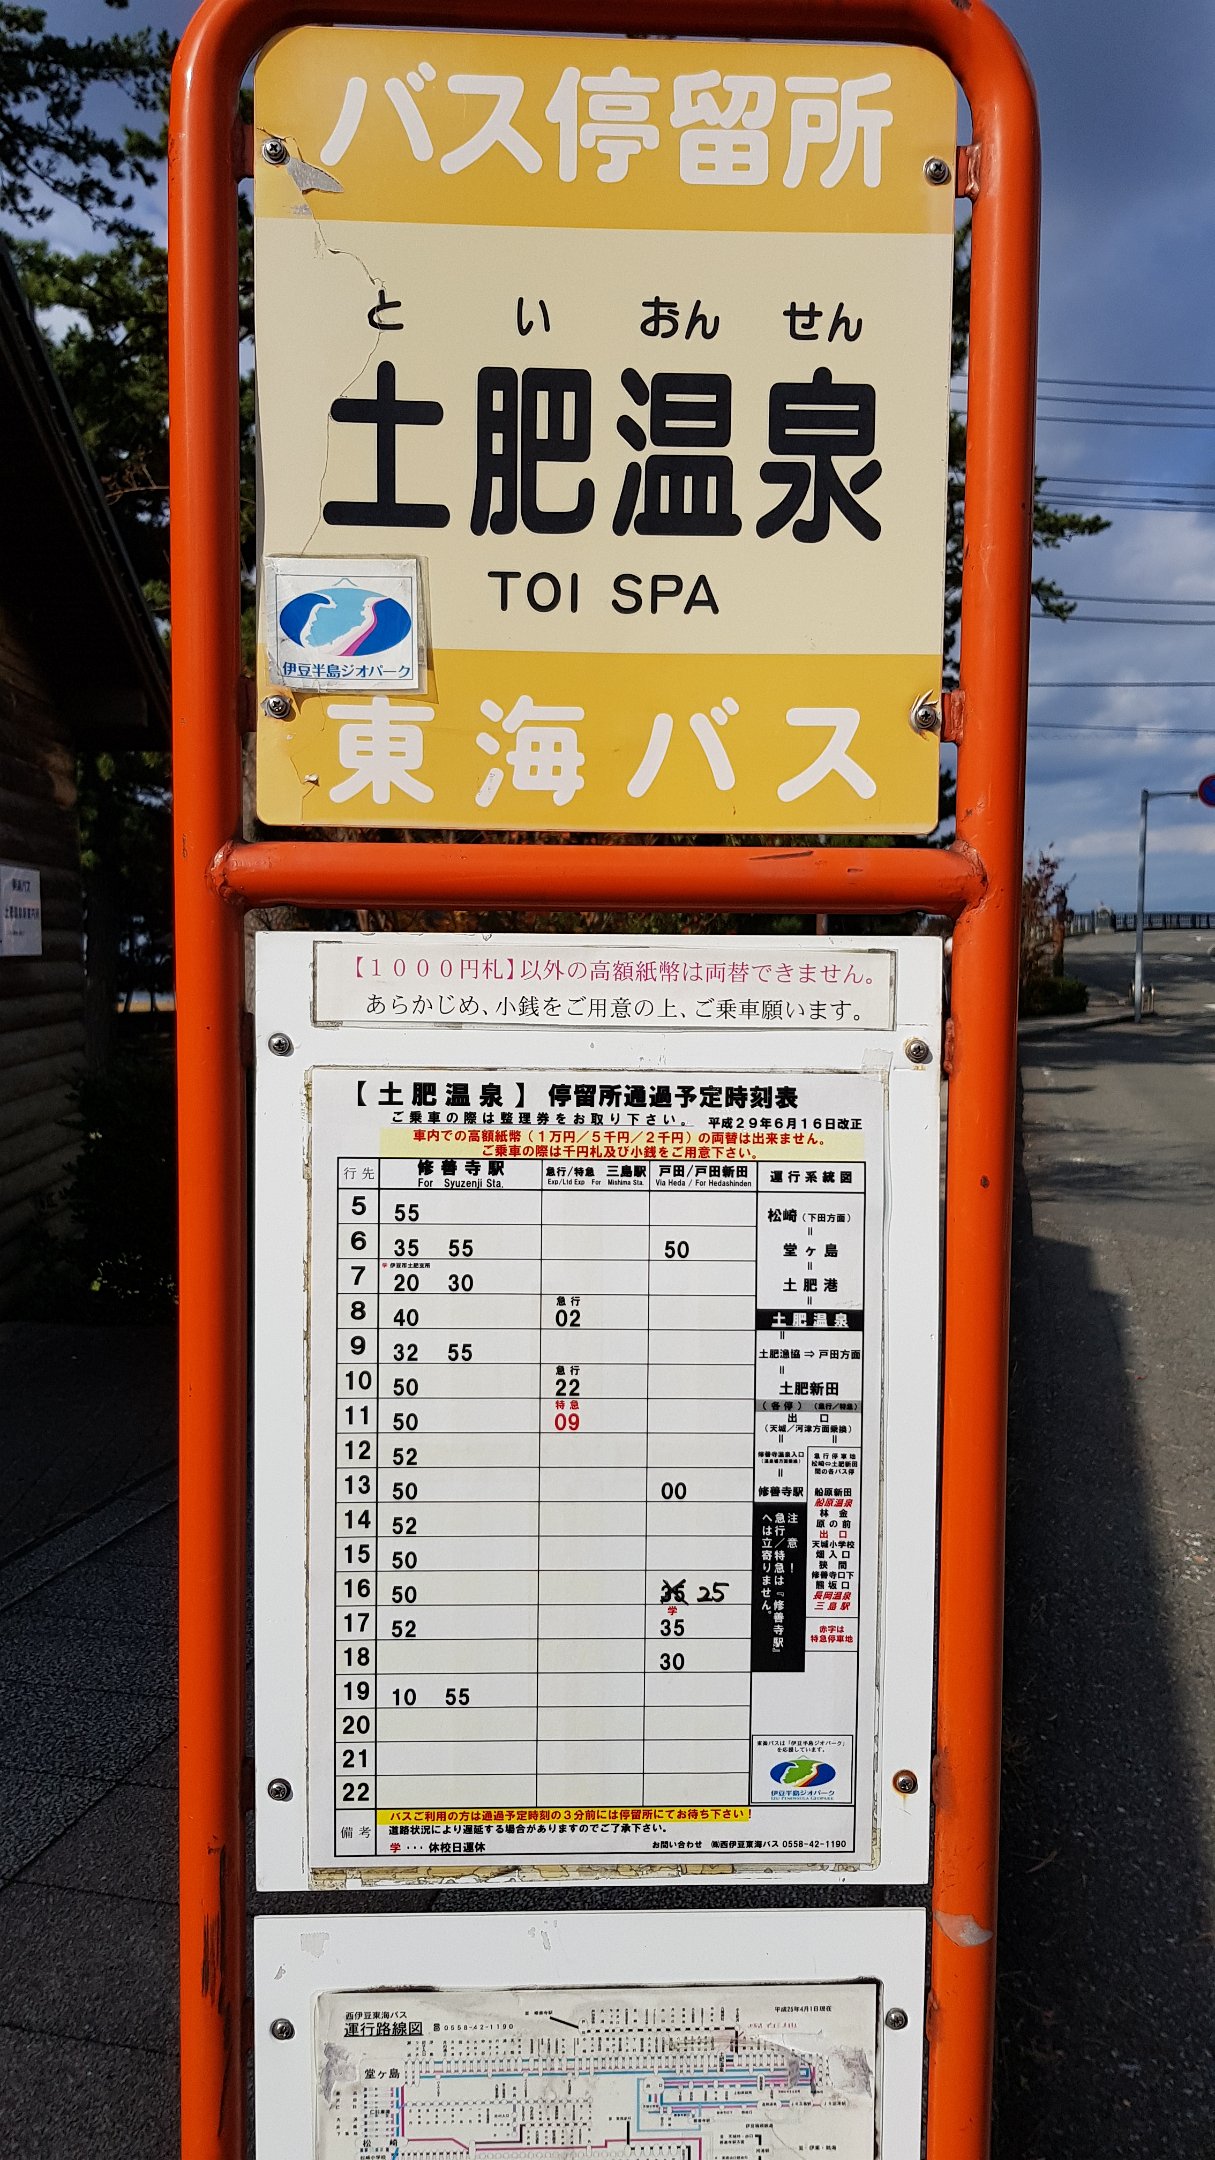 バス停留所
と い おん せん
土肥温泉
TOI SPA
伊豆半島ジオパーク
東海バス
東海バス
【１０００円札】以外の高額紙幣は両替できません。
あらかじめ、小銭をご用意の上、ご乗車願います。
【土肥温泉】 停留所通過予定時刻表
ご乗車の際は整理券をお取り下さい。 平成２９年６月１６日改正
車内での高額紙幣（１万円／５千円／２千円）の両替は出来ません。
ご乗車の際は千円札及び小銭をご用意下さい。
行先 修善寺駅 急行/特急 三島駅 戸田/戸田新田 運行系統図
For Syuzenji Sta. Exp/Ltd Exp For Mishima Sta. Via Heda / For Hedashinden
5 55
6 35 55 50
学 伊豆市土肥支所
7 20 30
急行
8 40 02
9 32 55
急行
10 50 22
特急
11 50 09
12 52
13 50 00
14 52
15 50
16 50 35 25
学
17 52 35
18 30
19 10 55
20
21
22
松崎（下田方面）
堂ヶ島
土肥港
土肥温泉
土肥漁協⇒戸田方面
土肥新田
（各停） （急行／特急）
出口
（天城／河津方面乗換）
修善寺温泉入口
（温泉場方面乗換）
修善寺駅
急行停車地
松崎⇔土肥新田
間の各バス停
船原新田
船原温泉
林金
原の前
出口
天城小学校
畑入口
狭間
修善寺口下
熊坂口
長岡温泉
三島駅
赤字は
特急停車地
注意！
急行／特急は『修善寺駅』
へは立寄りません。
東海バスは「伊豆半島ジオパーク」
を応援しています。
伊豆半島ジオパーク
IZU PENINSULA GEOPARK
備考 バスご利用の方は通過予定時刻の３分前には停留所にてお待ち下さい！
道路状況により遅延する場合がありますのでご了承下さい。
学・・・休校日運休 お問い合わせ ㈱西伊豆東海バス 0558-42-1190
西伊豆東海バス 平成26年4月1日現在
運行路線図 ☎0558-42-1190
堂ヶ島
松崎